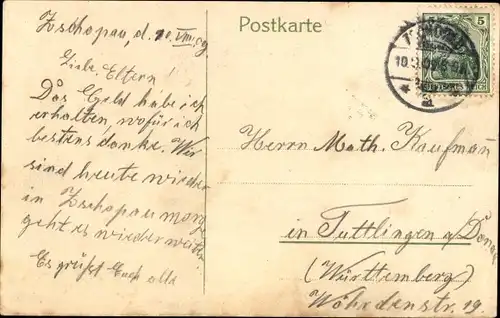 Postkarte
Zschopau, d. 10. VIII. 09.
Liebe Eltern!
Das Geld habe ich
erhalten, wofür ich
bestens danke. Wir
sind heute wieder
in Zschopau morg.
geht es wieder weiter.
Es grüßt Euch alle
5
Herrn Math. Kaufmann
in Tuttlingen a/Donau
(Württemberg)
Wöhrdenstr. 19.